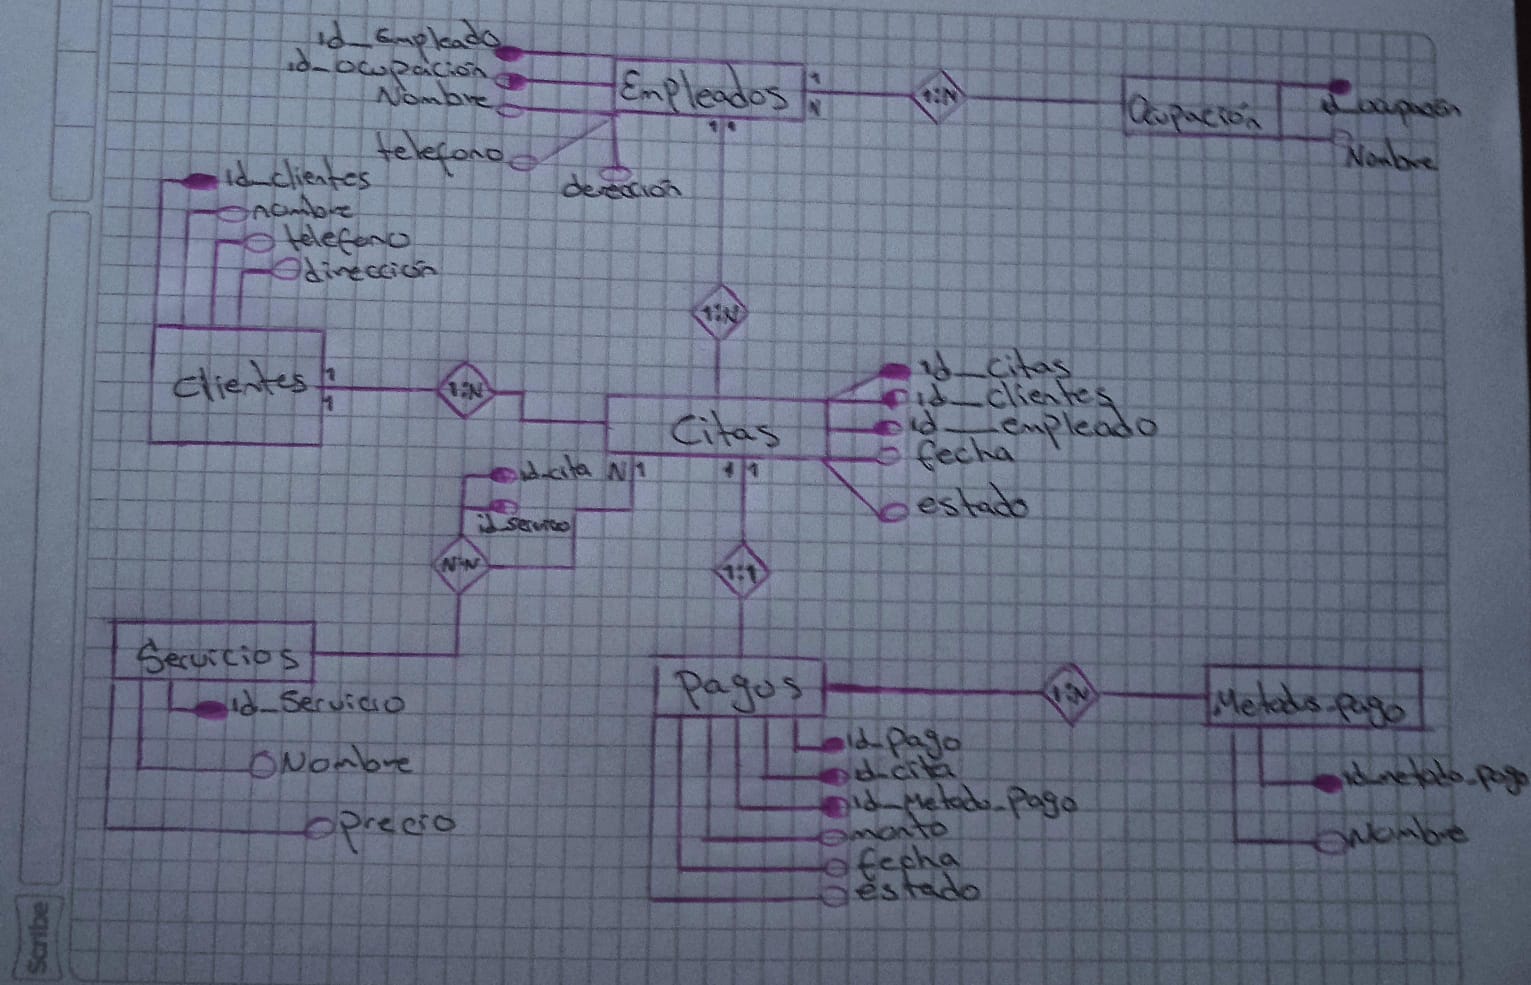 id_Empleado
id_ocupación
Nombre
telefono
dirección
Empleados
1
N
1:N
Ocupación
id_ocupación
Nombre
1 1
id_clientes
nombre
telefono
dirección
1:N
Clientes
1
1
1:N
Citas
id_citas
id_clientes
id_empleado
fecha
estado
id_cita
N 1
1 1
id_servicio
N:N
1:1
Servicios
id_Servicio
Nombre
Precio
Pagos
1:N
Metodos_pago
id_pago
id_cita
id_Metodo_Pago
monto
fecha
estado
id_metodo_pago
Nombre
Scribe